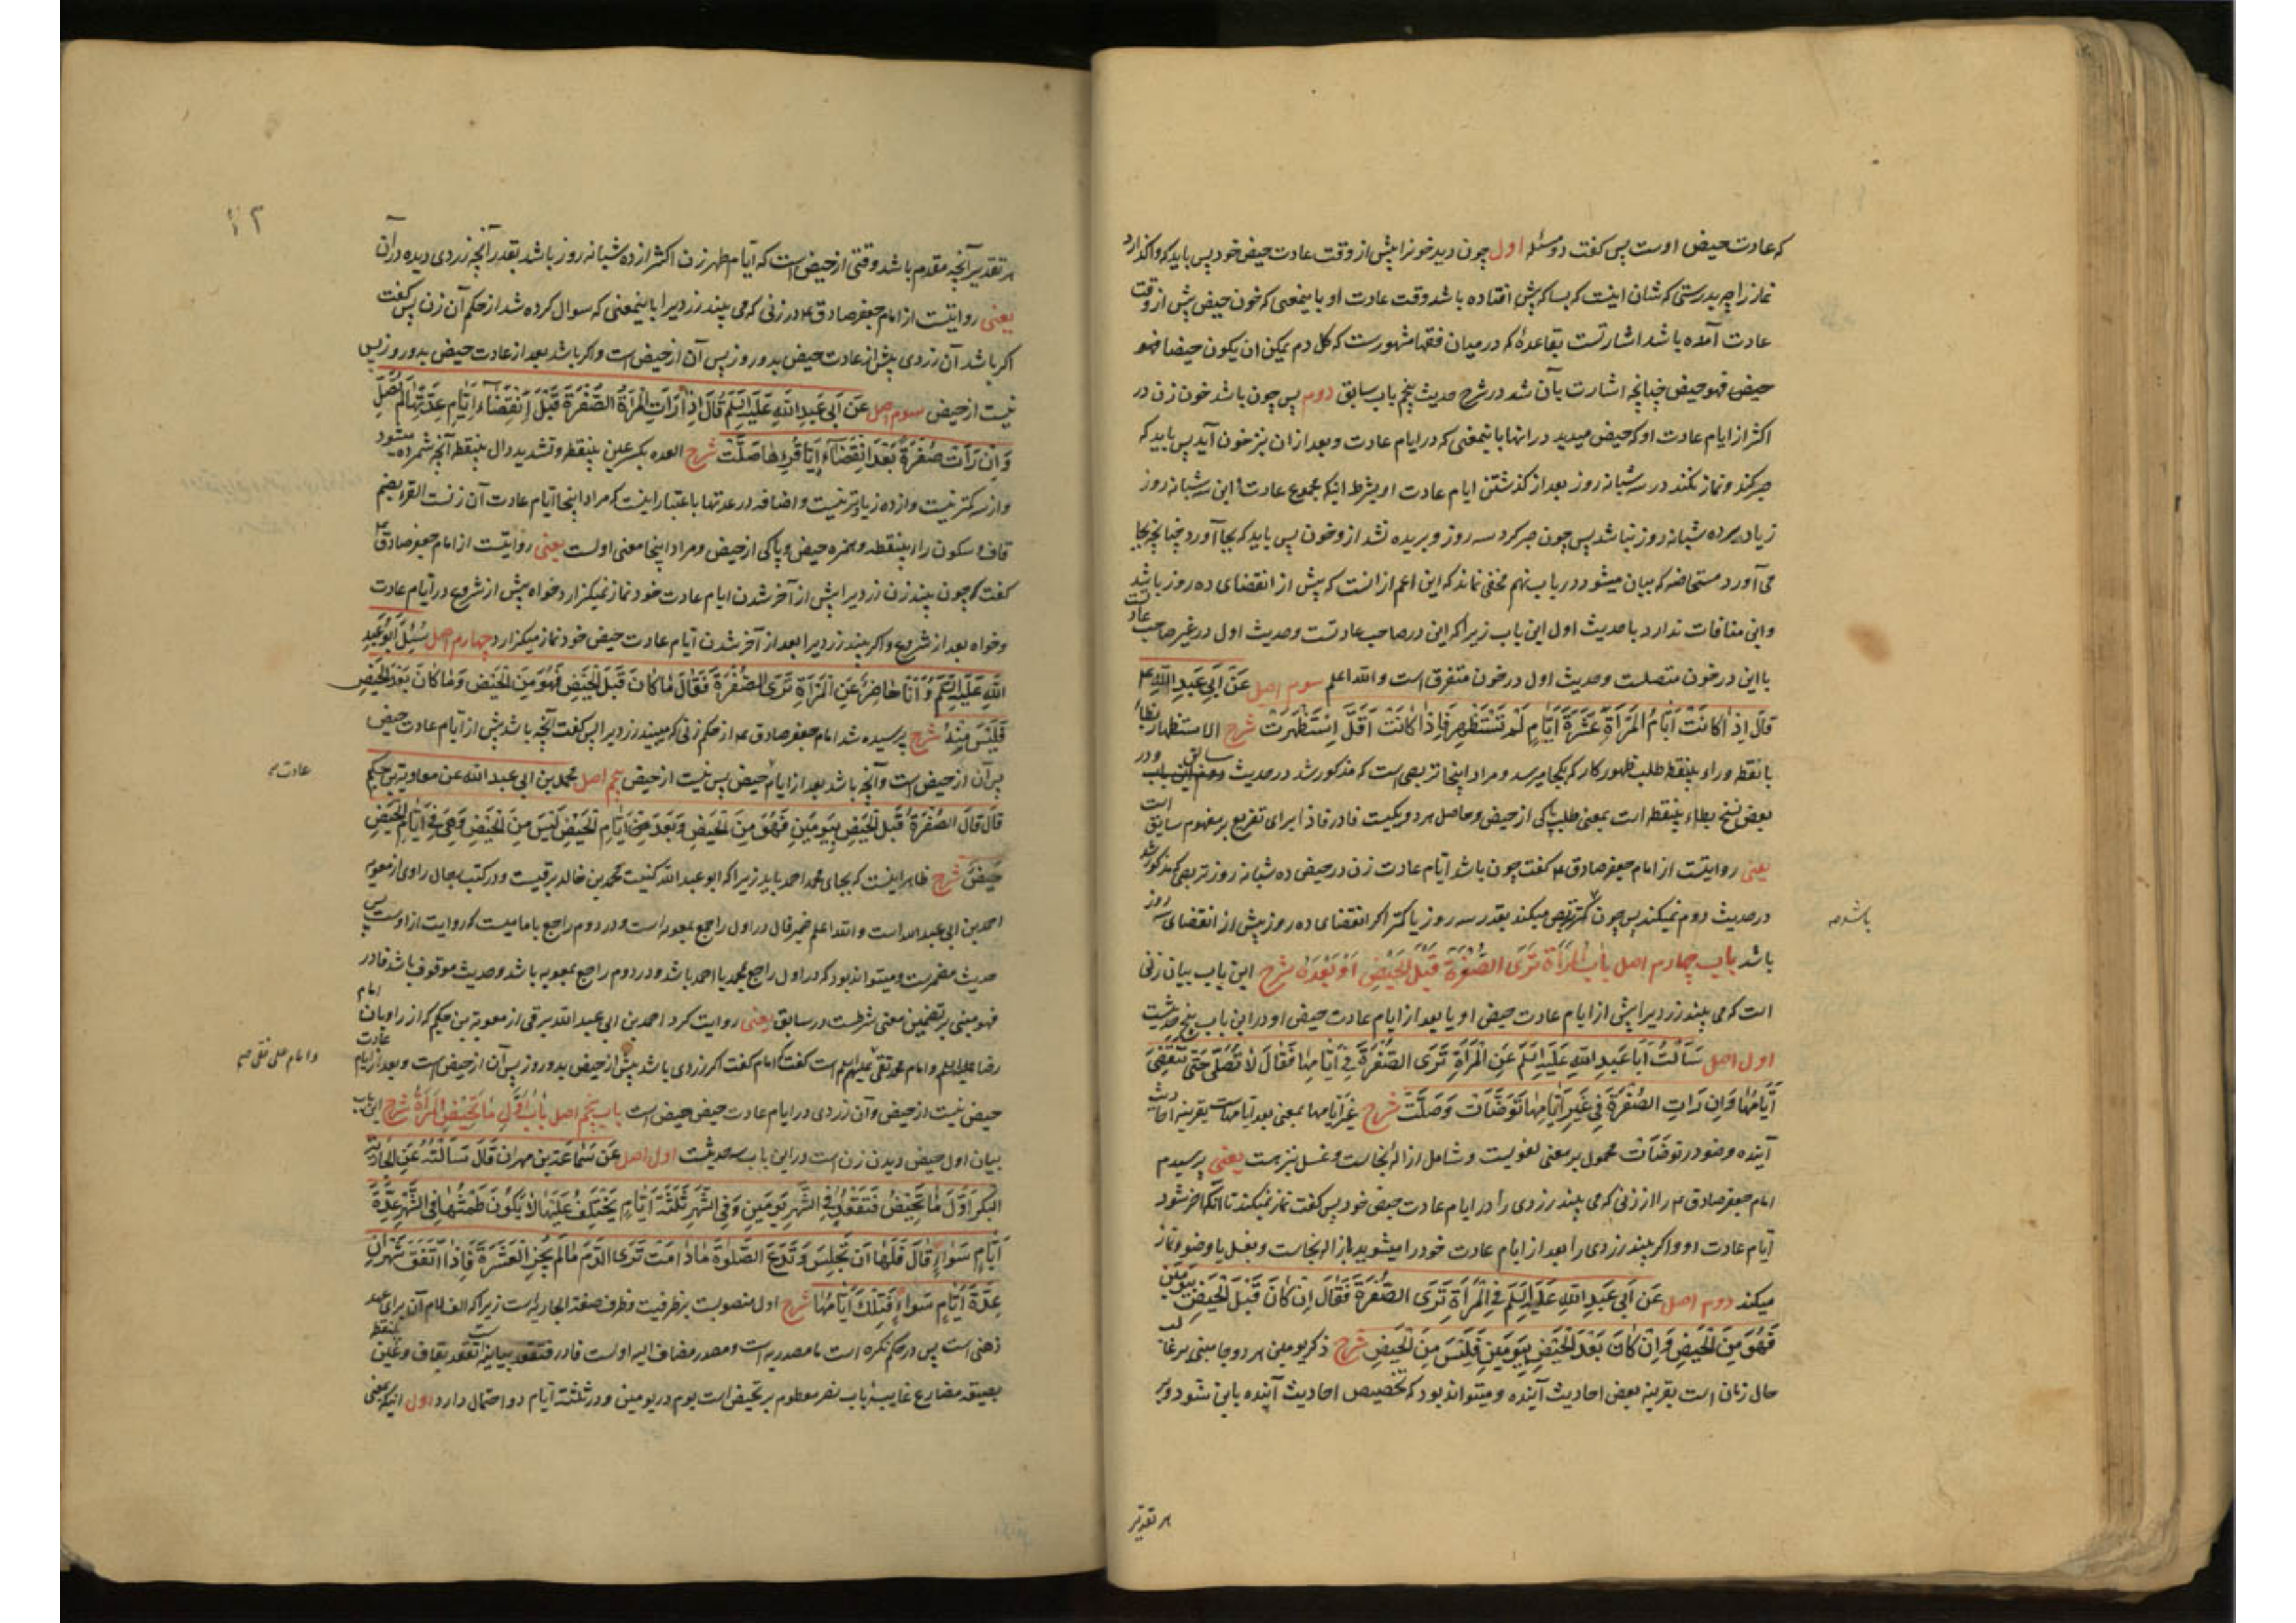 که عادت حیض اوست پس گفت دو مسئله اول چون دید خونرا پیش از وقت عادت حیض خود پس باید که واگذارد
نماز را چه بدرستی که شان اینست که بسا که پیش افتاده باشد وقت عادت او باینمعنی که خون حیض پیش از وقت
عادت آمده باشد اشارتست بقاعدهٔ که در میان فقها مشهورست که کل دم یمکن ان یکون حیضا فهو
حیض فهو حیض چنانچه اشارت بآن شد در شرح حدیث پنجم باب سابق دوم پس چون باشد خون زن در
اکثر از ایام عادت او که حیض میدید در انها باینمعنی که در ایام عادت و بعد از ان نیز خون آید پس باید که
صبر کند و نماز نکند در سه شبانه روز بعد از گذشتن ایام عادت او بشرط اینکه مجموع عادت و این سه شبانه روز
زیاد بر ده شبانه روز نباشد پس چون صبر کرد سه روز و بریده نشد ازو خون پس باید که بجا آورد چنانچه بجا
می آورد مستحاضه که بیان میشود در باب نهم مخفی نماند که این اعم از انست که پیش از انقضای ده روز باشد
و این منافات ندارد با حدیث اول این باب زیرا که این در صاحب عادتست و حدیث اول در غیر صاحب عادت
یا این در خون متصلست و حدیث اول در خون متفرق است و الله اعلم سوم اصل عَنْ اَبِی عَبدِ اللهِ ع
قَالَ اِذَا کَانَتْ اَیَّامُ المَرْأَةِ عَشَرَةَ اَیَّامٍ لَمْ تَسْتَظْهِرْ فَاِذَا کَانَتْ اَقَلَّ اِسْتَظْهَرَتْ شرح الاستظهار بظاء
با نقطه و راء بینقطه طلب ظهور کار که بکجا میرسد و مراد اینجا تربصی است که مذکور شد در حدیث دوم سابق و در
بعض نسخ بطاء بینقطه است بمعنی طلب پاکی از حیض و حاصل هر دو یکیست فا در فاذا برای تفریع بر مفهوم سابق است
یعنی روایتست از امام جعفر صادق ع گفت چون باشد ایام عادت زن در حیض ده شبانه روز تربصی که مذکور شد
در حدیث دوم نمیکند پس چون کمتر تربص میکند بقدر سه روز یا کمتر اگر انقضای ده روز پیش از انقضای سه روز
باشد باب چهارم اصل بَابُ المَرْأَةِ تَرَی الصُّفْرَةَ قَبْلَ الحَیْضِ اَوْ بَعْدَهُ شرح این باب بیان زنی
است که می بیند زردیرا پیش از ایام عادت حیض او یا بعد از ایام عادت حیض او و در این باب پنج حدیثست
اول اصل سَأَلْتُ اَبَا عَبدِ اللهِ عَلَیهِ السَّلَم عَنِ المَرْأَةِ تَرَی الصُّفْرَةَ فِی اَیَّامِهَا فَقَالَ لَا تُصَلِّی حَتَّی تَنْقَضِیَ
اَیَّامُهَا وَ اِن رَاَتِ الصُّفْرَةَ فِی غَیرِ اَیَّامِهَا تَوَضَّأَتْ وَ صَلَّتْ شرح غیر ایامها بمعنی بعد ایامهاست بقرینه احادیث
آینده وضو در توضأت محمول بر معنی لغویست و شامل ازالهٔ نجاست و غسل نیز هست یعنی پرسیدم
امام جعفر صادق ع را از زنی که می بیند زردی را در ایام عادت حیض خود پس گفت نماز نمیکند تا آنکه آخر شود
ایام عادت او و اگر بیند زردی را بعد از ایام عادت خود را میشوید بازاله نجاست و بغسل یا وضو و نماز
میکند دوم اصل عَن اَبی عَبدِ اللهِ عَلَیهِ السَّلَم فِی المَرْأَةِ تَرَی الصُّفْرَةَ فَقَالَ اِن کَانَ قَبْلَ الحَیْضِ بِیَومَیْنِ
فَهُوَ مِنَ الحَیْضِ وَ اِنْ کَانَ بَعْدَ الحَیْضِ بِیَومَینِ فَلَیْسَ مِنَ الحَیْضِ شرح ذکر یومین هر دو جا مبنی بر غالب
حال زنان است بقرینه بعض احادیث آینده و میتواند بود که تخصیص احادیث آینده باین شود و بر
باشد صح
هر تقدیر
هر تقدیر آنچه مقدم باشد وقتی از حیض است که ایام طهر زن اکثر از ده شبانه روز باشد بقدر آنچه زردی دیده در آن
یعنی روایتست از امام جعفر صادق ع در زنی که می بیند زردیرا باینمعنی که سوال کرده شد از حکم آن زن پس گفت
اگر باشد آن زردی پیش از عادت حیض بدو روز پس آن از حیض است و اگر باشد بعد از عادت حیض بدو روز پس
نیست از حیض سوم اصل عَن اَبی عَبدِ اللهِ عَلَیهِ السَّلَم قَالَ اِذَا رَأَتِ المَرْأَةُ الصُّفْرَةَ قَبْلَ اِنْقِضَاءِ اَیَّامِ عِدَّتِهَا لَمْ تُصَلِّ
وَ اِن رَأَتْ صُفْرَةً بَعْدَ انْقِضَاءِ اَیَّامِ قُرْئِهَا صَلَّتْ شرح العده بکسر عین بینقطه و تشدید دال بینقطه آنچه شمرده میشود
و از سه کمتر نیست و از ده زیادتر نیست و اضافه در عدتها باعتبار اینست که مراد اینجا ایام عادت آن زنست القرء بضم
قاف و سکون راء بینقطه و همزه حیض و پاکی از حیض و مراد اینجا معنی اولست یعنی روایتست از امام جعفر صادق ع
گفت که چون بیند زن زردیرا پیش از آخر شدن ایام عادت خود نماز نمیگزارد خواه پیش از شروع در ایام عادت
و خواه بعد از شروع و اگر بیند زردیرا بعد از آخر شدن ایام عادت حیض خود نماز میگزارد چهارم اصل سُئِلَ اَبُو عَبدِ
اللهِ عَلَیهِ السَّلَم وَ اَنَا حَاضِرٌ عَنِ المَرْأَةِ تَرَی الصُّفْرَةَ فَقَالَ مَا کَانَ قَبْلَ الحَیْضِ فَهُوَ مِنَ الحَیْضِ وَ مَا کَانَ بَعْدَ الحَیْضِ
فَلَیْسَ مِنْهُ شرح پرسیده شد امام جعفر صادق ع از حکم زنی که میبیند زردیرا پس گفت آنچه باشد پیش از ایام عادت حیض
پس آن از حیض است و آنچه باشد بعد از ایام حیض پس نیست از حیض پنجم اصل محمد بن ابی عبد الله عن معاویة بن حکیم
قَالَ قَالَ الصُّفْرَةُ قَبْلَ الحَیْضِ بِیَومَینِ فَهُوَ مِنَ الحَیْضِ وَ بَعْدَ اَیَّامِ الحَیْضِ لَیْسَ مِنَ الحَیْضِ وَ هِیَ فِی اَیَّامِ الحَیْضِ
حَیْضٌ شرح ظاهر اینست که بجای محمد احمد باید زیرا که ابو عبد الله کنیت محمد بن خالد برقیست و در کتب رجال راوی از معویه
احمد بن ابی عبد الله است و الله اعلم ضمیر قال در اول راجع بمعویه است و در دوم راجع بامامیست که روایت ازاوست پس
حدیث مضمرست و میتواند بود که در اول راجع بمحمد یا احمد باشد و در دوم راجع بمعویه باشد و حدیث موقوف باشد فا در
فهو مبنی بر تضمین معنی شرطست در سابق یعنی روایت کرد احمد بن ابی عبد الله برقی از معویة بن حکیم که از راویان امام
رضا علیه السلم و امام محمد تقی علیهم السلم است گفت که امام گفت اگر زردی باشد پیش از حیض بدو روز پس آن از حیض است و بعد از ایام عادت
حیض نیست از حیض و آن زردی در ایام عادت حیض حیض است باب پنجم اصل بَابُ اَوَّلِ مَا تَحِیضُ المَرْأَةُ شرح این باب
بیان اول حیض دیدن زن است و در این باب سه حدیثست اول اصل عَن سَمَاعَة بن مهران قَالَ سَأَلْتُهُ عَنِ الجَارِیَةِ
البِکْرِ اَوَّلَ مَا تَحِیضُ فَتَقْعُدُ فِی الشَّهْرِ یَومَینِ وَ فِی الشَّهرِ ثَلَثَةَ اَیَّامٍ یَخْتَلِفُ عَلَیْهَا لَا یَکُونُ طَمْثُهَا فِی الشَّهْرِ عِدَّةَ
اَیَّامٍ سَوَاءً قَالَ فَلَهَا اَنْ تَجْلِسَ وَ تَدَعَ الصَّلوةَ مَادَامَتْ تَرَی الدَّمَ مَا لَمْ یَجُزِ العَشَرَةَ فَاِذَا اتَّفَقَ شَهْرَانِ
عِدَّةَ اَیَّامٍ سَوَاءً فَتِلْکَ اَیَّامُهَا شرح اول منصوبست بظرفیت و ظرف صفت الجاریه است زیرا که الف لام آن برای عهد
ذهنی است پس در حکم نکره است ما مصدریه است و مصدر مضاف الیه اول است فا در فتقعد بیانیه است تقعد بقاف و عین بینقطه
بصیغه مضارع غایبه باب نصر معطوم بر تحیض است یوم در یومین و در ثلثة ایام دو احتمال دارد اول اینکه بمعنی
عادت صح
و امام علی نقی صح